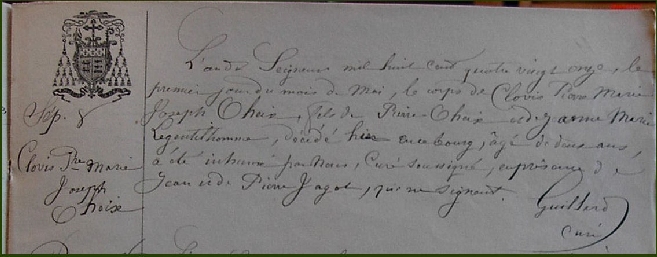 Sép. 8
Clovis Pre Marie
Joseph
Choix
L'an du Seigneur mil huit cent quatre vingt onze, le
premier jour du mois de Mai, le corps de Clovis Pierre Marie
Joseph Choix, fils de Pierre Choix et de Jeanne Marie
Legentilhomme, décédé hier en ce bourg, âgé de deux ans,
a été inhumé par Nous, Curé soussigné, en présence de
Jean et de Pierre Jagot, qui ne signent.
Guillard
curé